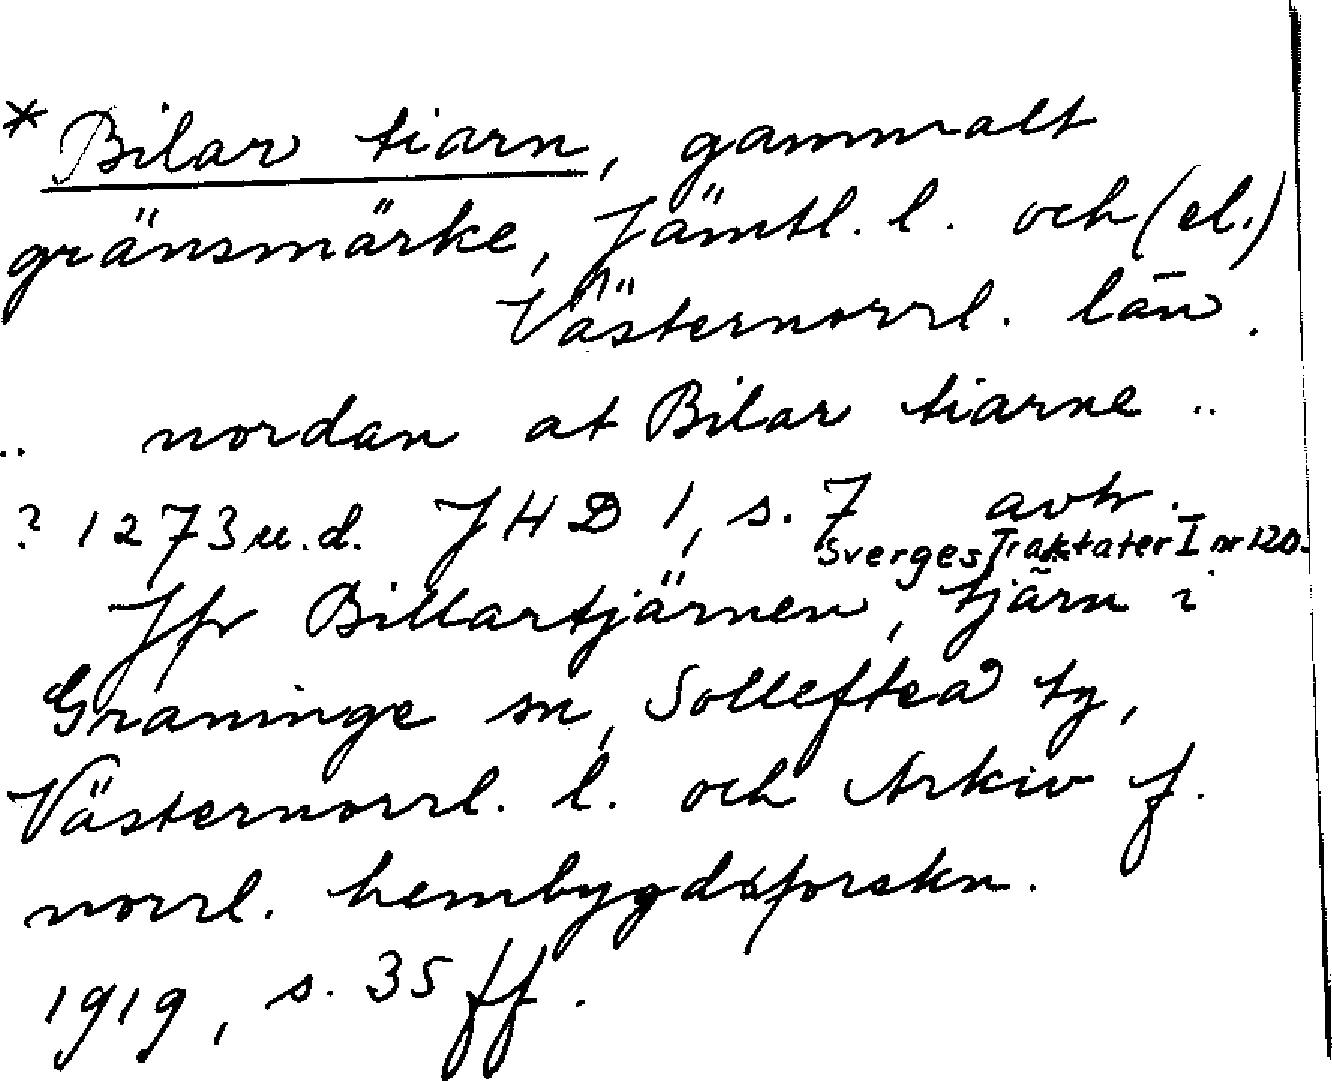 * Bilar tiarn, gammalt
gränsmärke, Jämtl. l. och (el.)
Västernorrl. län.
.. nordan at Bilar tiarne ..
? 1273 u.d. JHD 1, s. 7 avtr.
Sverges Traktater I nr 120.
Jfr Billartjärnen, tjärn i
Graninge sn, Sollefteå tg,
Västernorrl. l. och Arkiv f.
norrl. hembygdsforskn.
1919, s. 35 ff.